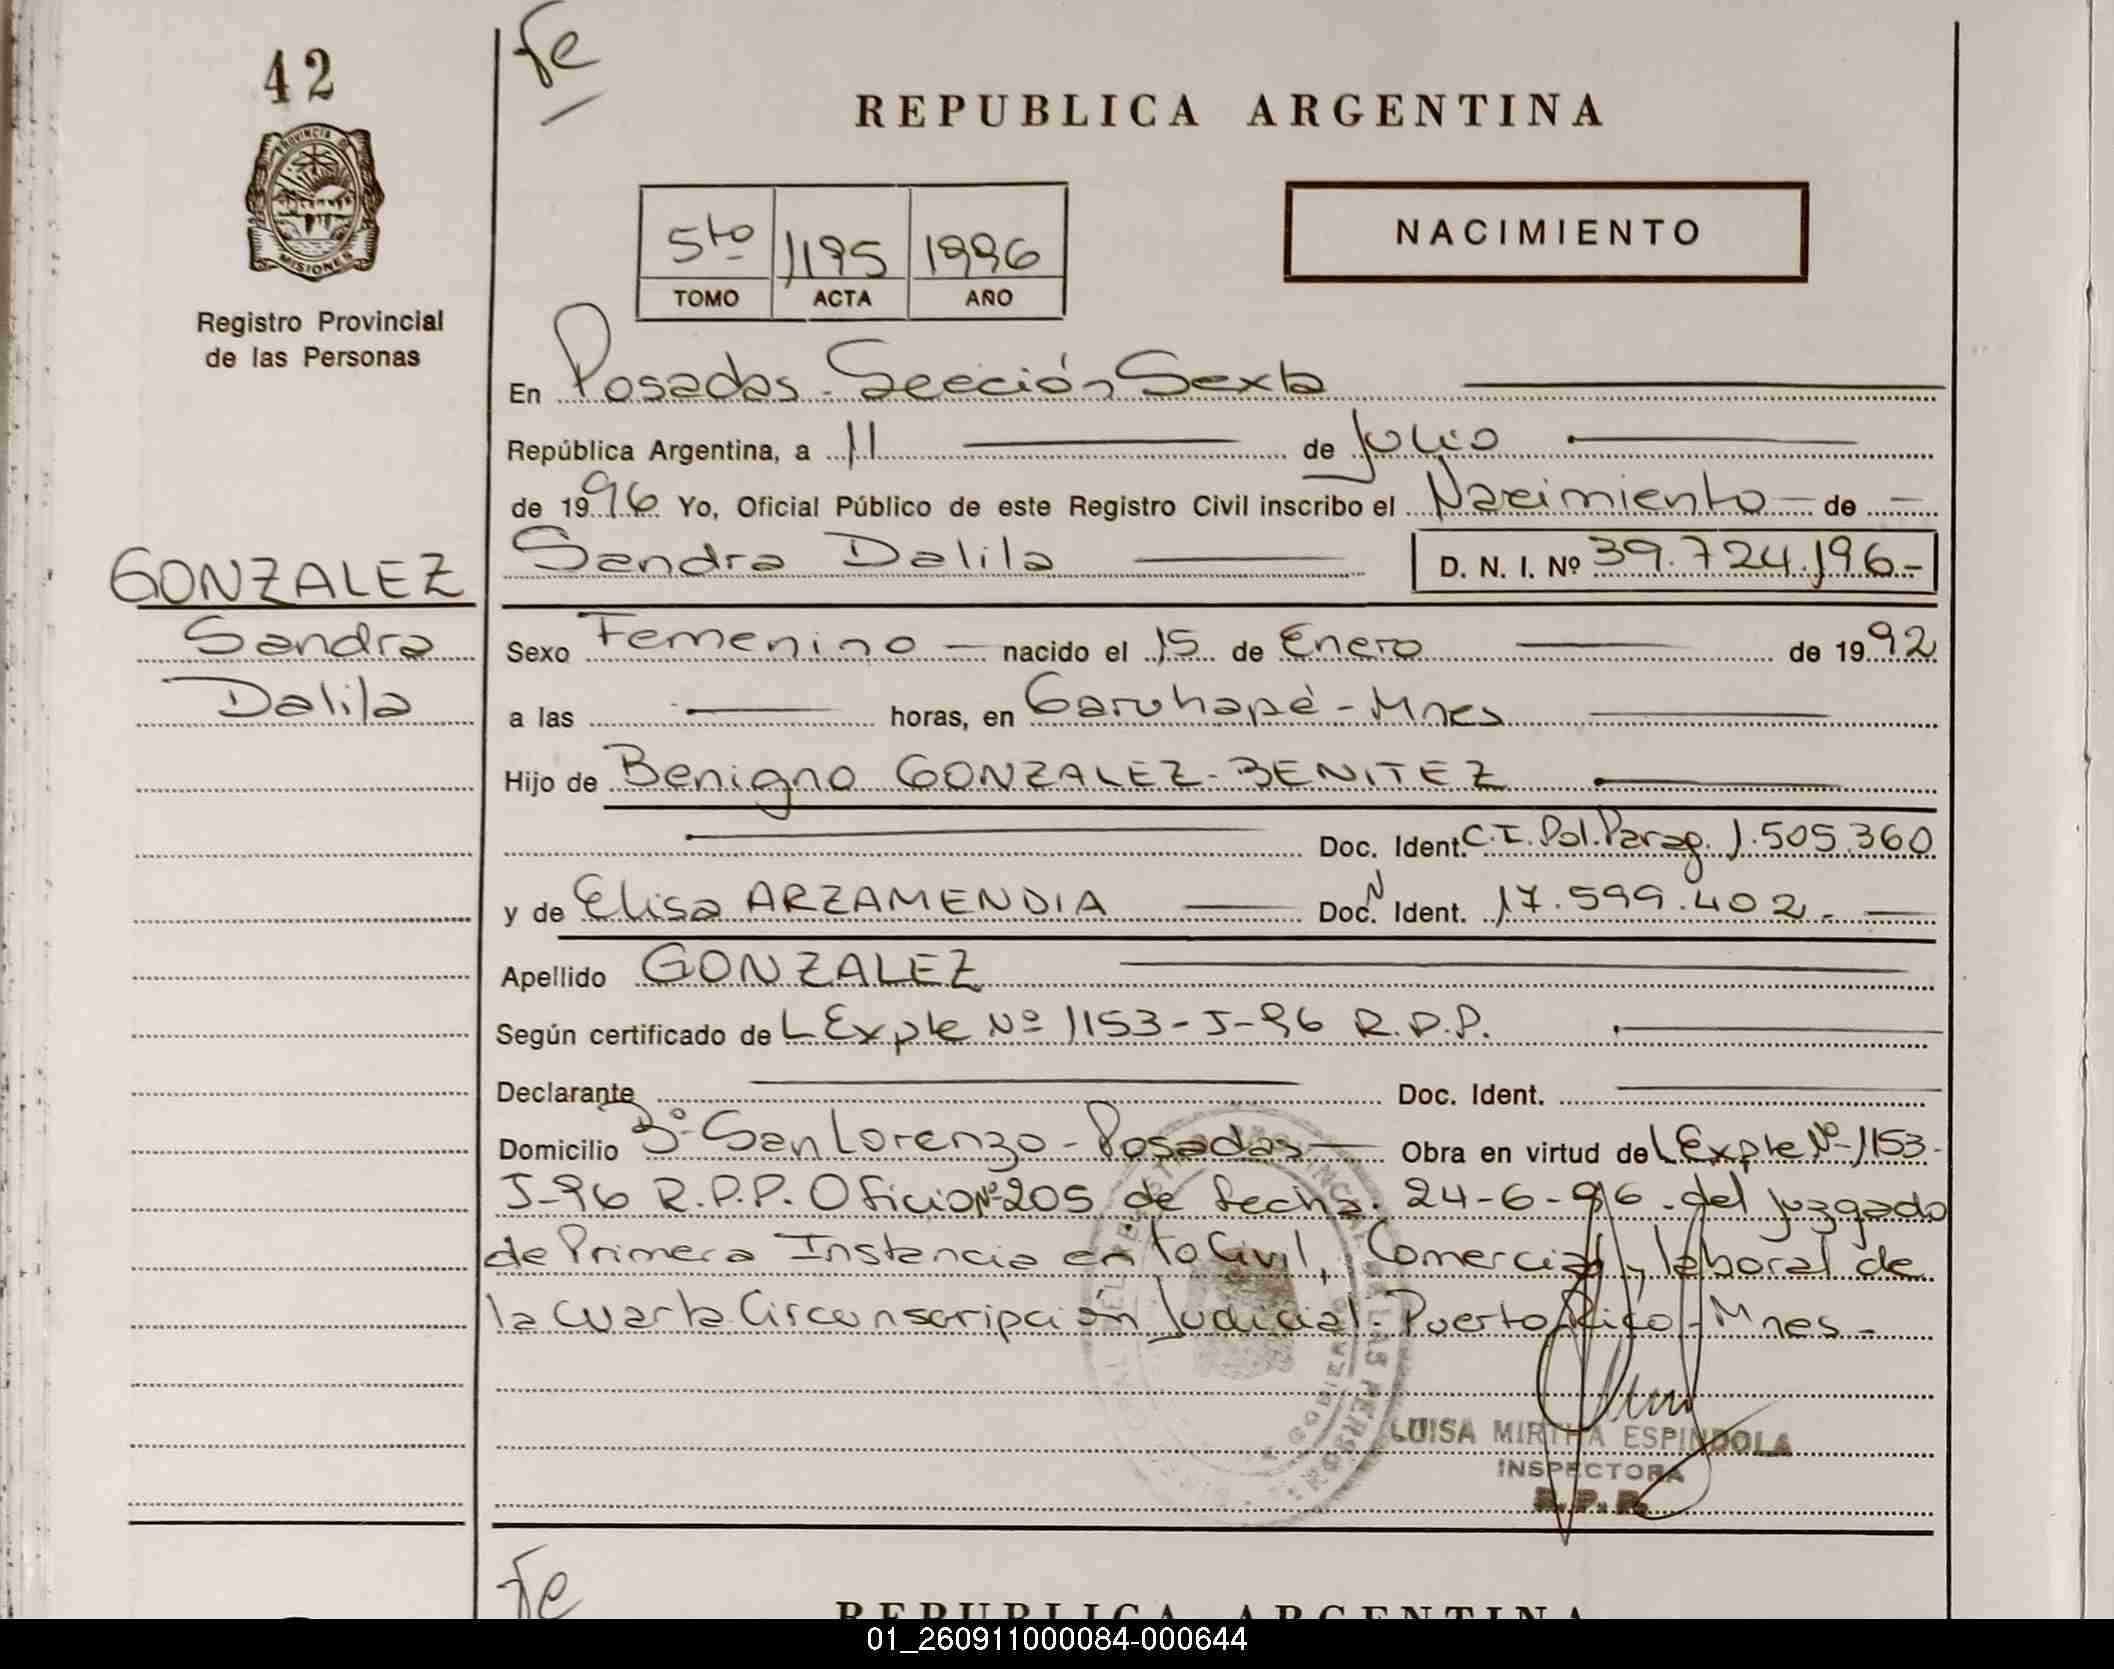 42
fe
REPUBLICA ARGENTINA
PROVINCIA DE
MISIONES
5to 1195 1996
TOMO ACTA AÑO
NACIMIENTO
Registro Provincial
de las Personas
En Posadas - Sección Sexta
República Argentina, a 11 de Julio
de 1996 Yo, Oficial Público de este Registro Civil inscribo el Nacimiento de
Sandra Dalila D. N. I. Nº 39.724.196-
GONZALEZ
Sandra
Dalila
Sexo Femenino nacido el 15 de Enero de 1992
a las horas, en Garuhapé - Mnes
Hijo de Benigno GONZALEZ - BENITEZ
Doc. Ident. C.I. Pol. Parag. 1.505.360
y de Elisa ARZAMENDIA Doc. N Ident. 17.599.402.-
Apellido GONZALEZ
Según certificado de L Expte Nº 1153-J-96 R.P.P.
Declarante Doc. Ident.
Domicilio Bº San Lorenzo - Posadas Obra en virtud de L Expte Nº 1153-
J-96 R.P.P. Oficio Nº 205 de fecha. 24-6-96 - del Juzgado
de Primera Instancia en lo Civil, Comercial y laboral de
la Cuarta Circunscripción Judicial - Puerto Rico - Mnes -
LUISA MIRTHA ESPINDOLA
INSPECTORA
R. P. P.
fe
REPUBLICA ARGENTINA
01_260911000084-000644